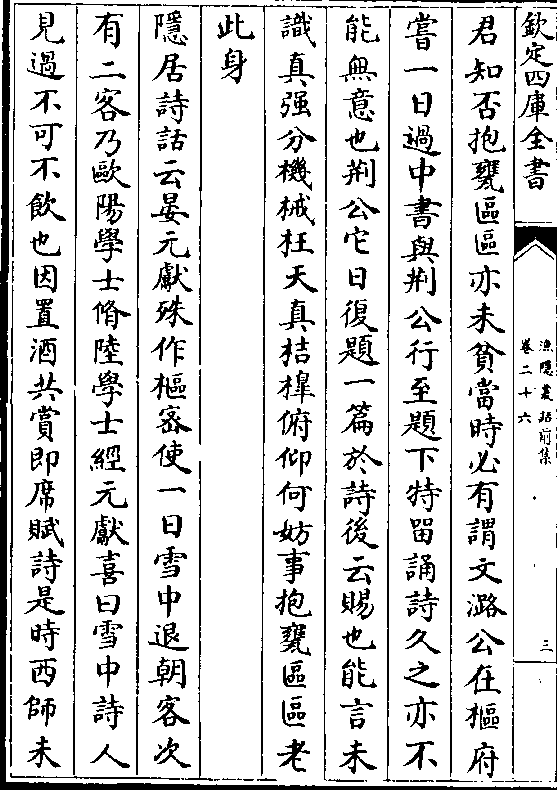 欽定四庫全書
漁隱叢話前集
卷二十六
三
君知否抱甕區區亦未貧當時必有謂文潞公在樞府
嘗一日過中書與荆公行至題下特留誦詩久之亦不
能無意也荆公它日復題一篇於詩後云賜也能言未
識真强分機械枉天真桔橰俯仰何妨事抱甕區區老
此身
隱居詩話云晏元獻殊作樞宻使一日雪中退朝客次
有二客乃歐陽學士脩陸學士經元獻喜曰雪中詩人
見過不可不飲也因置酒共賞即席賦詩是時西師未